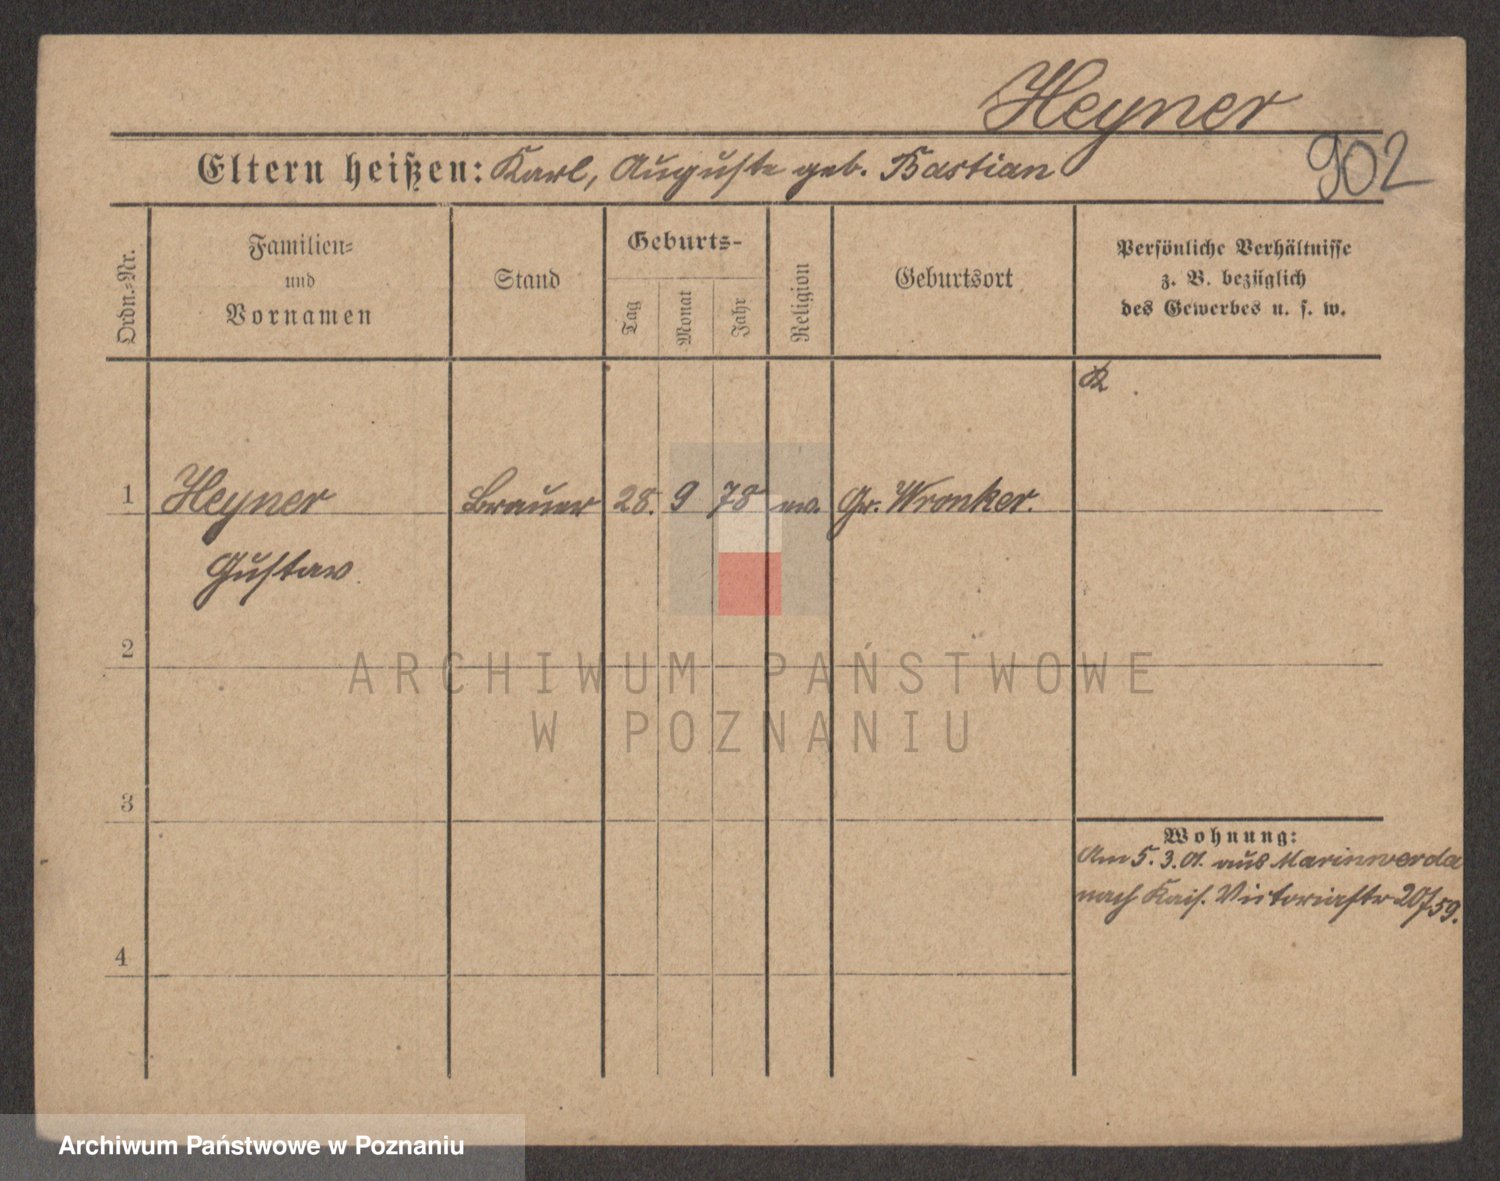 Heyner
902
Eltern heißen: Karl, Auguste geb. Bastian
Ordn.-Nr.
Familien-
und
Vornamen
Stand
Geburts-
Tag
Monat
Jahr
Religion
Geburtsort
Persönliche Verhältnisse
z. B. bezüglich
des Gewerbes u. s. w.
1 Heyner Brauer 28. 9 78 ev. Gr. Wronker.
Gustav
2
3
4
Wohnung:
Am 5.3.01. aus Marinwerda
nach Kais. Victoriastr 20/59.
ARCHIWUM PAŃSTWOWE
W POZNANIU
Archiwum Państwowe w Poznaniu